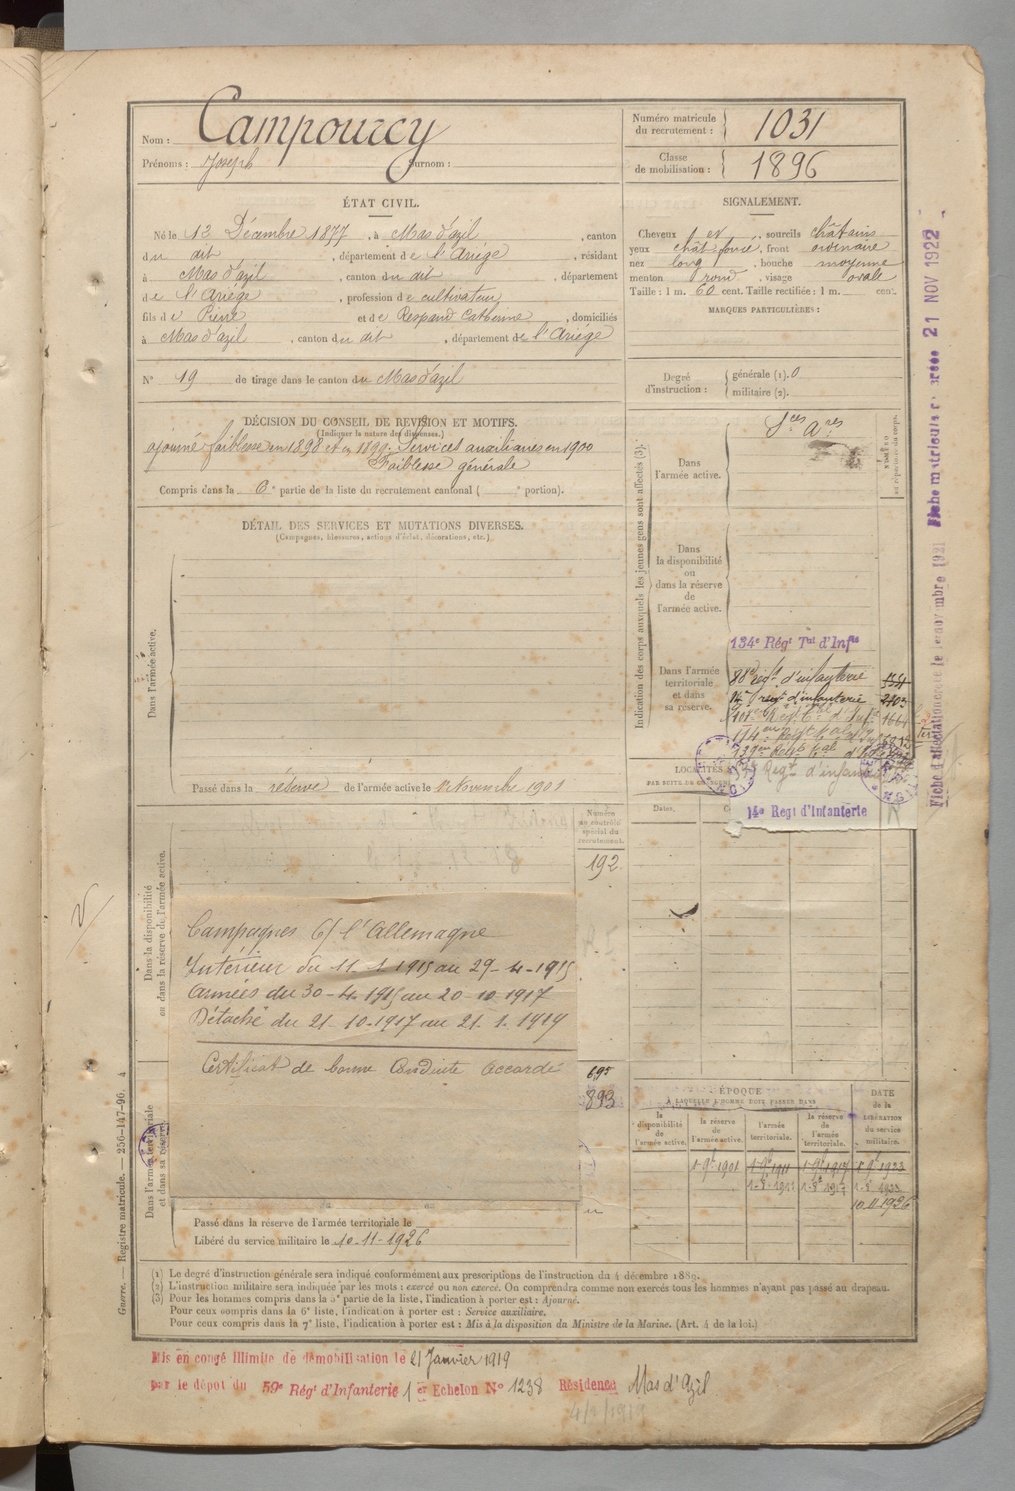 Nom : Campourcy
Prénoms : Joseph Surnom :
Numéro matricule du recrutement : 1031
Classe de mobilisation : 1896
ÉTAT CIVIL.
Né le 13 Décembre 1877, à Mas d'azil, canton
du dit, département de l'Ariége, résidant
à Mas d'azil, canton du dit, département
de l'Ariége, profession de cultivateur
fils de Pierre et de Respaud Catherine, domiciliés
à Mas d'azil, canton du dit, département de l'Ariége
N° 19 de tirage dans le canton du Mas d'azil
SIGNALEMENT.
Cheveux et, sourcils châtains
yeux chât foncé, front ordinaire
nez long, bouche moyenne
menton rond, visage ovale
Taille : 1 m. 60 cent. Taille rectifiée : 1 m. cent.
MARQUES PARTICULIÈRES :
Degré d'instruction : générale (1). 0
militaire (2).
DÉCISION DU CONSEIL DE REVISION ET MOTIFS.
(Indiquer la nature des dispenses.)
ajourné faiblesse en 1898 et en 1899. Services auxiliaires en 1900
Faiblesse générale
Compris dans la 6e partie de la liste du recrutement cantonal ( e portion).
DÉTAIL DES SERVICES ET MUTATIONS DIVERSES.
(Campagnes, blessures, actions d'éclat, décorations, etc.)
Dans l'armée active.
Passé dans la réserve de l'armée active le 1er Novembre 1901
Dans la disponibilité
ou dans la réserve de l'armée active.
Numéro
au contrôle
spécial du
recrutement.
192
Campagnes C/ l'Allemagne
Intérieur du 11-1-1915 au 29-4-1915
Armées du 30-4-1915 au 20-10-1917
Détaché du 21-10-1917 au 21-1-1919
Certificat de bonne Conduite accordé
695
893
Dans l'armée territoriale
et dans sa réserve.
Passé dans la réserve de l'armée territoriale le
Libéré du service militaire le 10-11-1926
Indication des corps auxquels les jeunes gens sont affectés (3).
Dans
l'armée active.
Sces Ares
Dans
la disponibilité
ou
dans la réserve
de
l'armée active.
Dans l'armée
territoriale
et dans
sa réserve.
134e Régt Tal d'Infie
88e régt d'infanterie
14e régt d'infanterie
Régt d'infanterie
14e Regt d'Infanterie
LOCALITÉS
Dates.
ÉPOQUE
À LAQUELLE L'HOMME DOIT PASSER DANS
la
disponibilité
de
l'armée active.
la réserve
de
l'armée active.
l'armée
territoriale.
la réserve
de
l'armée
territoriale.
DATE
de la
LIBÉRATION
du service
militaire.
1-9bre 1901
10-11-1926
(1) Le degré d'instruction générale sera indiqué conformément aux prescriptions de l'instruction du 4 décembre 1889.
(2) L'instruction militaire sera indiquée par les mots : exercé ou non exercé. On comprendra comme non exercés tous les hommes n'ayant pas passé au drapeau.
(3) Pour les hommes compris dans la 5e partie de la liste, l'indication à porter est : Ajourné.
Pour ceux compris dans la 6e liste, l'indication à porter est : Service auxiliaire.
Pour ceux compris dans la 7e liste, l'indication à porter est : Mis à la disposition du Ministre de la Marine. (Art. 4 de la loi.)
Mis en congé illimité de démobilisation le 21 Janvier 1919
par le dépôt du 59e Régt d'Infanterie 1er Echelon N° 1238 Résidence Mas d'Azil
Guerre. — Registre matricule. — 256-147-96. 4
21 NOV 1922